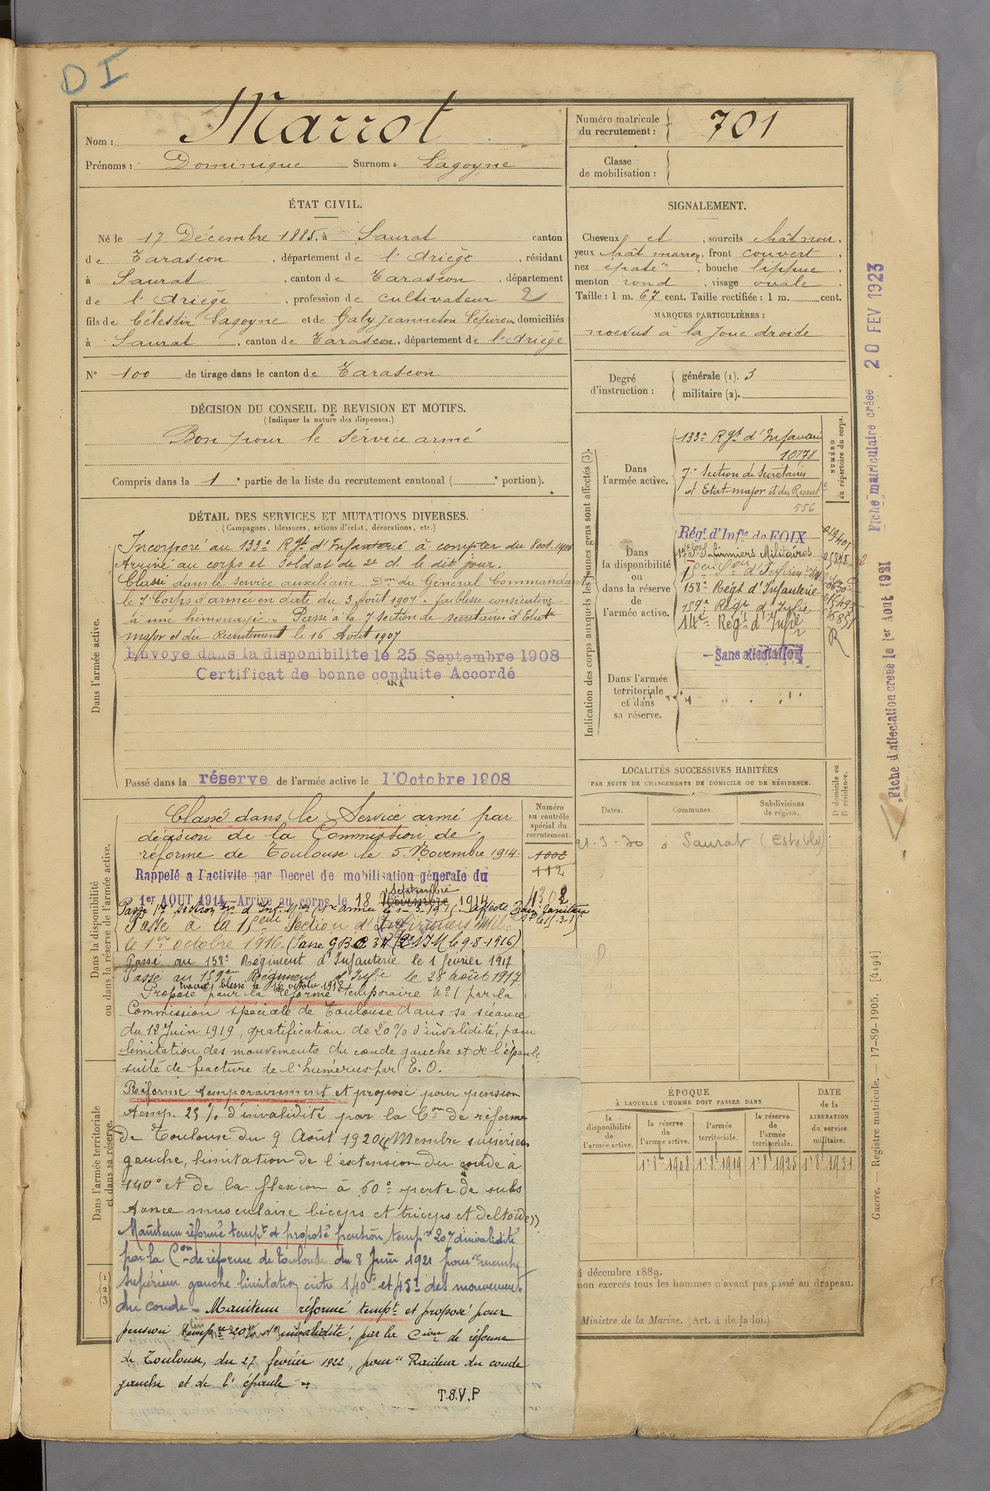 D I
Nom : Marrot
Prénoms : Dominique Surnom : Lagoyne
Numéro matricule du recrutement : 701
Classe de mobilisation :
ÉTAT CIVIL.
Né le 17 Décembre 1885, à Saurat canton
de Tarascon, département de l'Ariège, résidant
à Saurat, canton de Tarascon, département
de l'Ariège, profession de cultivateur 2
fils de Célestin Lagoyne et de Galy Jeanneton domiciliés
à Saurat, canton de Tarascon, département de l'Ariège
N° 100 de tirage dans le canton de Tarascon
SIGNALEMENT.
Cheveux et, sourcils chât noir,
yeux chât marron, front couvert,
nez épaté, bouche lippue,
menton rond, visage ovale.
Taille : 1 m. 67 cent. Taille rectifiée : 1 m. cent.
MARQUES PARTICULIÈRES :
noevus à la joue droite
Degré d'instruction : générale (1). 3
militaire (2).
DÉCISION DU CONSEIL DE REVISION ET MOTIFS.
(Indiquer la nature des dispenses.)
Bon pour le service armé
Compris dans la 1e partie de la liste du recrutement cantonal ( e portion).
DÉTAIL DES SERVICES ET MUTATIONS DIVERSES.
(Campagnes, blessures, actions d'éclat, décorations, etc.)
Dans l'armée active.
Incorporé au 133e Rgt d'Infanterie à compter du 8 oct. 1906
Arrivé au corps et Soldat de 2e cl. le dit jour.
Classé dans le service auxiliaire Don du Général Commandant
le 7e Corps d'armée en date du 3 Août 1907 - faiblesse consécutive
à une hémorragie - Passé à la 7e section de secrétaires d'Etat
major et du Recrutement le 16 Août 1907
Envoyé dans la disponibilité le 25 Septembre 1908
Certificat de bonne conduite Accordé
Passé dans la réserve de l'armée active le 1er Octobre 1908
Indication des corps auxquels les jeunes gens sont affectés (3).
NUMÉRO au répertoire du corps.
Dans l'armée active.
133e Rgt d'Infanterie
10178
7e Section de Secrétaires
d'Etat major et du Recrut
556
Dans la disponibilité ou dans la réserve de l'armée active.
Régt d'Infie de FOIX
Infirmiers Militaires
158e Régt d'Infanterie
159e Régt d'Infie
14e Régt d'Infie
R
Sans affectation
Dans l'armée territoriale et dans sa réserve.
Dans la disponibilité ou dans la réserve de l'armée active.
Numéro au contrôle spécial du recrutement.
1002
112
Classé dans le Service armé par
décision de la Commission de
réforme de Toulouse le 5 Novembre 1914.
Rappelé à l'activité par Decret de mobilisation générale du
1er AOUT 1914 - Arrivé au corps le 18 Novembre Septembre 1914
Passé à la 15eme Section d'Infirmiers Mil.
le 1er octobre 1916. (
Passé au 158e Régiment d'Infanterie le 1 février 1917
Passé au 159eme Régiment d'Infie le 28 août 1917
Proposé pour la réforme temporaire N°1 par la
Commission spéciale de Toulouse dans sa séance
du 12 Juin 1919, gratification de 20% d'invalidité, pour
limitation des mouvements du coude gauche et de l'épaule
suite de fracture de l'humérus par E.O.
Dans l'armée territoriale et dans sa réserve.
Réformé temporairement et proposé pour pension
temp. 25% d'invalidité par la Con de réforme
de Toulouse du 9 Août 1920 (Membre supérieur
gauche, limitation de l'extension du coude à
140° et de la flexion à 60° perte de subs
tance musculaire biceps et triceps et deltoïde))
Maintenu réformé tempt et proposé pension tempre 20% d'invalidité
par la Con de réforme de Toulouse du 8 Juin 1921 pour "membre
supérieur gauche limitation entre 140° et 45° des mouvements
du coude - Maintenu réformé tempt et proposé pour
pension tempre 20% d'invalidité, par la Cion de réforme
de Toulouse, du 27 février 1922, pour "Raideur du coude
gauche et de l'épaule".
T.S.V.P
LOCALITÉS SUCCESSIVES HABITÉES
PAR SUITE DE CHANGEMENTS DE DOMICILE OU DE RÉSIDENCE.
Dates. Communes. Subdivisions de région. D domicile ou R résidence.
21-3-20 à Saurat
ÉPOQUE
À LAQUELLE L'HOMME DOIT PASSER DANS
la disponibilité de l'armée active.
la réserve de l'armée active.
l'armée territoriale.
la réserve de l'armée territoriale.
DATE de la LIBÉRATION du service militaire.
1er 8bre 1908
1er 8bre 1919
1er 8bre 1925
1er 8bre 1931
4 décembre 1889.
non exercés tous les hommes n'ayant pas passé au drapeau.
Ministre de la Marine. (Art. 4 de la loi.)
Fiche d'affectation créée le 1er Août 1921 Fiche matriculaire créée 20 FEV 1923
Guerre. — Registre matricule. — 17-89-1905. [4194]